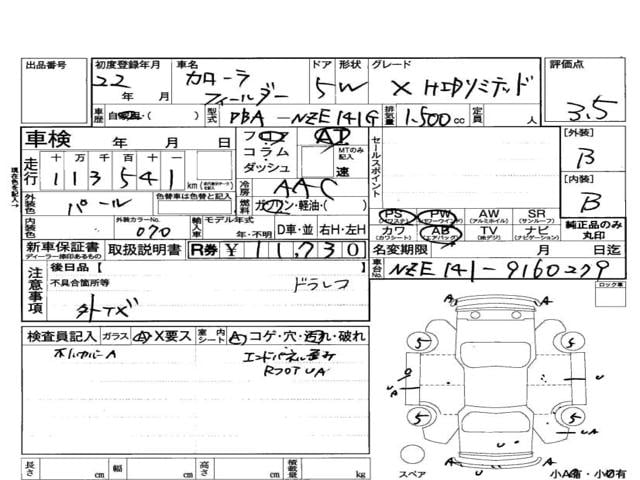 出品番号 初度登録年月 車名 ドア 形状 グレード 評価点
22 年 月 カローラ フィールダー 5 W X HIDリミテッド 3.5
車歴 自家用・( ) 型式 DBA-NZE141G 排気量 1,500 cc 定員 人
車検 年 月 日 フロア コラム ダッシュ AT MTのみ記入 速 セールスポイント [外装] B
走行 十 万 千 百 十 一
113541 km
冷房 AAC [内装] B
現在色を記入
外装色 パール 色替車は元色と色替と記入 燃料 ガソリン・軽油・( )
PS (パワステ) PW (パワーウインド) AW (アルミホイル) SR (サンルーフ)
内装色 外装カラーNo. 070 輸入車 モデル年式 年・不明 D車・並 右H・左H
カワ (カワシート) AB (エアバッグ) TV (地デジ) ナビ (ナビゲーション) 純正品のみ丸印
新車保証書 ディーラー捺印あるもの 取扱説明書 R券 ¥11,730 名変期限 月 日迄
注意事項 後日品【 】 車台No. NZE141-9160279
不具合箇所等 ドラレコ ロック車
外TX
検査員記入 ガラス A・X要ス 室内シート A コゲ・穴・汚れ・破れ
ホイルカバーA エンドパネル歪み
RフロアUA
A A
5 5
U
U U
5 5
UA UA
U
A A
スペア
長さ cm 幅 cm 高さ cm 積載量 kg 小A有・小U有